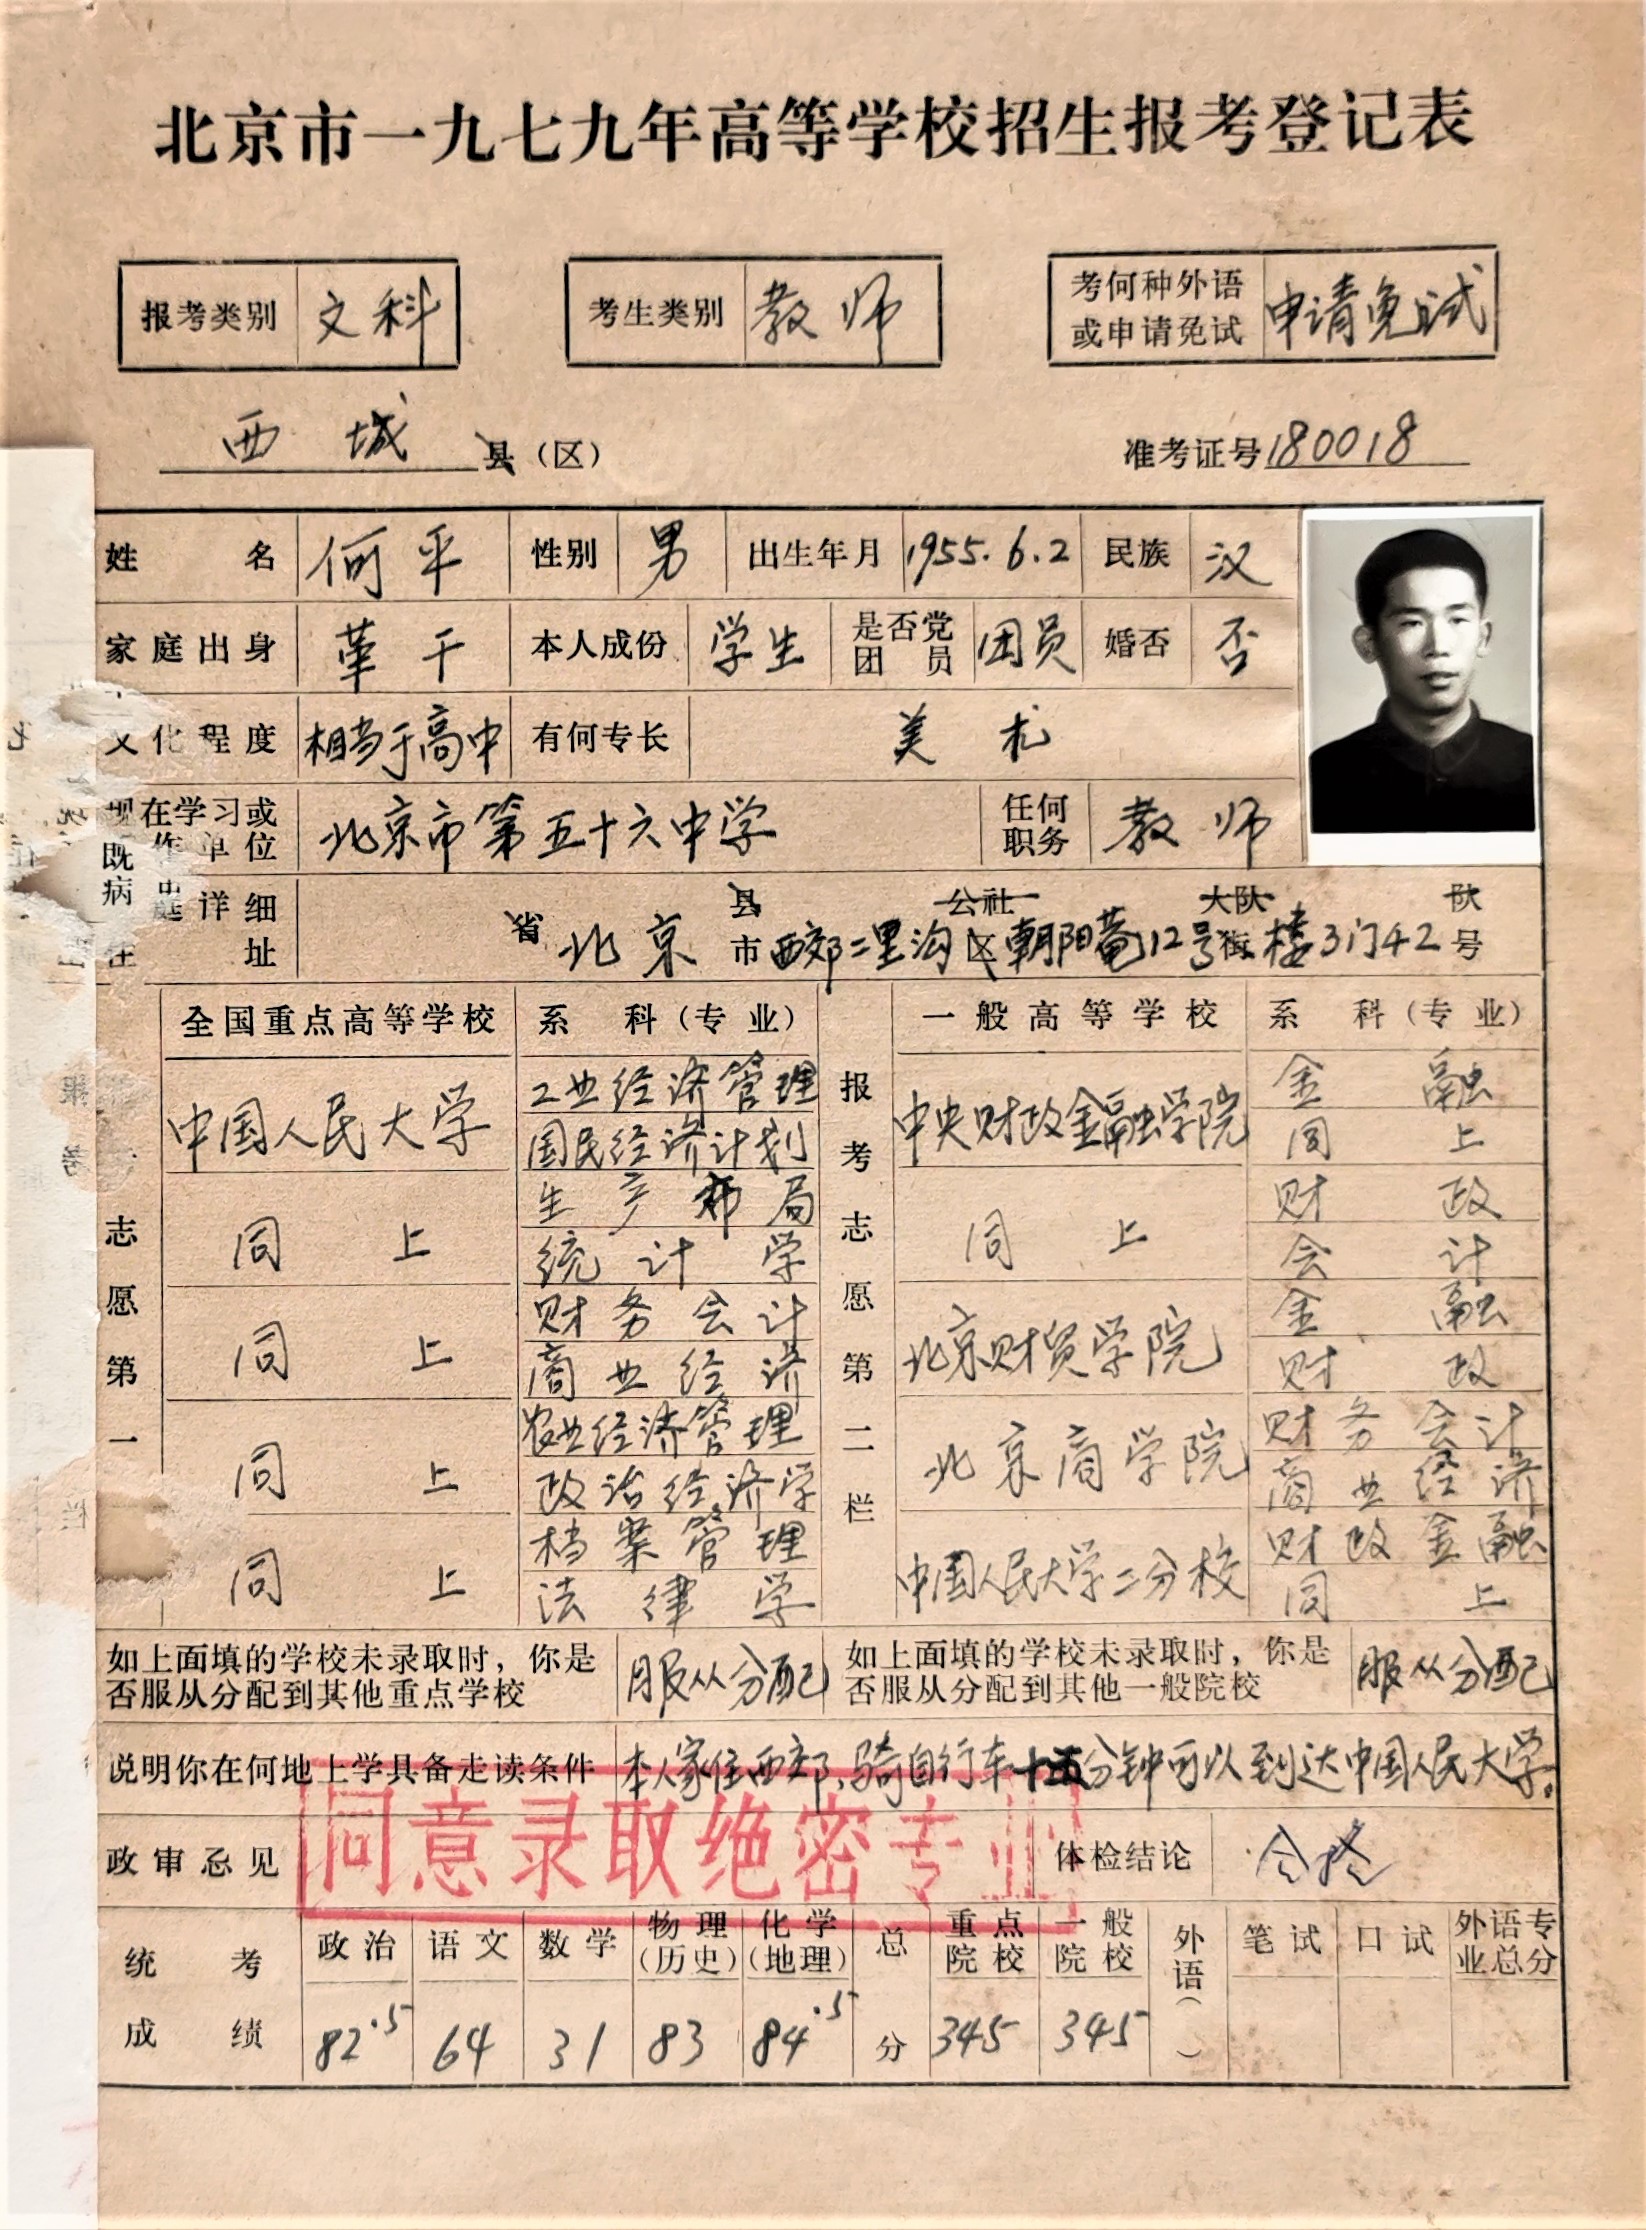 北京市一九七九年高等学校招生报考登记表
报考类别 文科 考生类别 教师 考何种外语或申请免试 申请免试
西城 县（区） 准考证号 180018
姓名 何平 性别 男 出生年月 1955.6.2 民族 汉
家庭出身 革干 本人成份 学生 是否党团员 团员 婚否 否
文化程度 相当于高中 有何专长 美术
现在学习或工作单位 北京市第五十六中学 任何职务 教师
既
病
家庭详细住址 省 北京 县市 西郊二里沟 区 公社 朝阳菴12号 大队 街 楼3门42 队号
志愿第一 报考志愿第二栏
全国重点高等学校 系科（专业） 一般高等学校 系科（专业）
中国人民大学 工业经济管理 中央财政金融学院 金融
国民经济计划 同上
同上 生产布局 同上 财政
统计学 会计
同上 财务会计 北京财贸学院 金融
商业经济 财政
同上 农业经济管理 北京商学院 财务会计
政治经济学 商业经济
同上 档案管理 中国人民大学二分校 财政金融
法律学 同上
如上面填的学校未录取时，你是否服从分配到其他重点学校 服从分配 如上面填的学校未录取时，你是否服从分配到其他一般院校 服从分配
说明你在何地上学具备走读条件 本人家住西郊、骑自行车十五分钟可以到达中国人民大学。
政审意见 同意录取绝密专业 体检结论 合格
统考成绩 政治 语文 数学 物理（历史） 化学（地理） 总分 重点院校 一般院校 外语（ ） 笔试 口试 外语专业总分
82.5 64 31 83 84.5 345 345